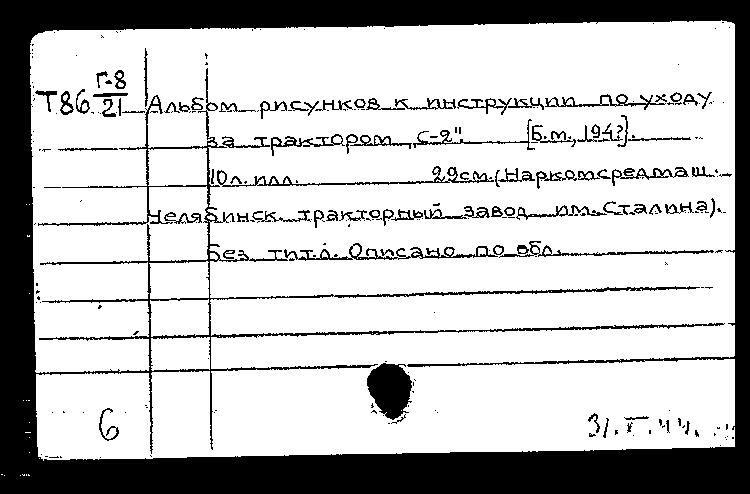 Т86 Г-8/21 Альбом рисунков к инструкции по уходу
за трактором „С-2". [Б.м., 194?].
10л. илл. 29см. (Наркомсредмаш.
Челябинск. тракторный завод им. Сталина).
Без тит.л. Описано по обл.
6 31.I.44.